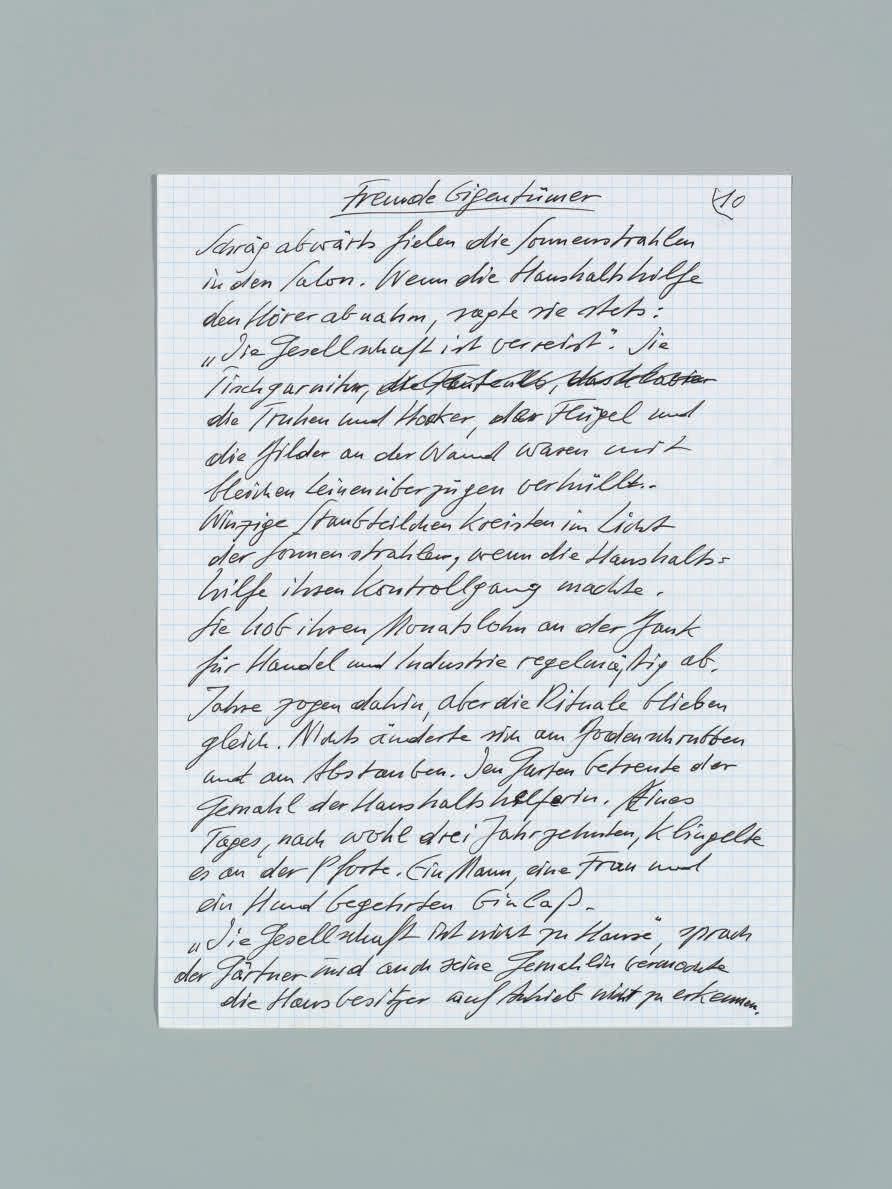 Fremde Eigentümer
10
Schräg abwärts fielen die Sonnenstrahlen
in den Salon. Wenn die Haushaltshilfe
den Hörer abnahm, sagte sie stets:
„Die Gesellschaft ist verreist“. Die
Tischgarnitur, die Fauteuils, das Klavier
die Truhen und Hocker, der Flügel und
die Bilder an der Wand waren mit
bleichen Leinenüberzügen verhüllt.
Winzige Staubteilchen kreisten im Licht
der Sonnenstrahlen, wenn die Haushalts=
hilfe ihren Kontrollgang machte.
Sie hob ihren Monatslohn an der Bank
für Handel und Industrie regelmäßig ab.
Jahre zogen dahin, aber die Rituale blieben
gleich. Nichts änderte sich am Bodenschrubben
und am Abstauben. Den Garten betreute der
Gemahl der Haushaltshelferin. Eines
Tages, nach wohl drei Jahrzehnten, klingelte
es an der Pforte. Ein Mann, eine Frau und
ein Hund begehrten Einlaß.
„Die Gesellschaft ist nicht zu Hause“, sprach
der Gärtner und auch seine Gemahlin vermochte
die Hausbesitzer auf Anhieb nicht zu erkennen.